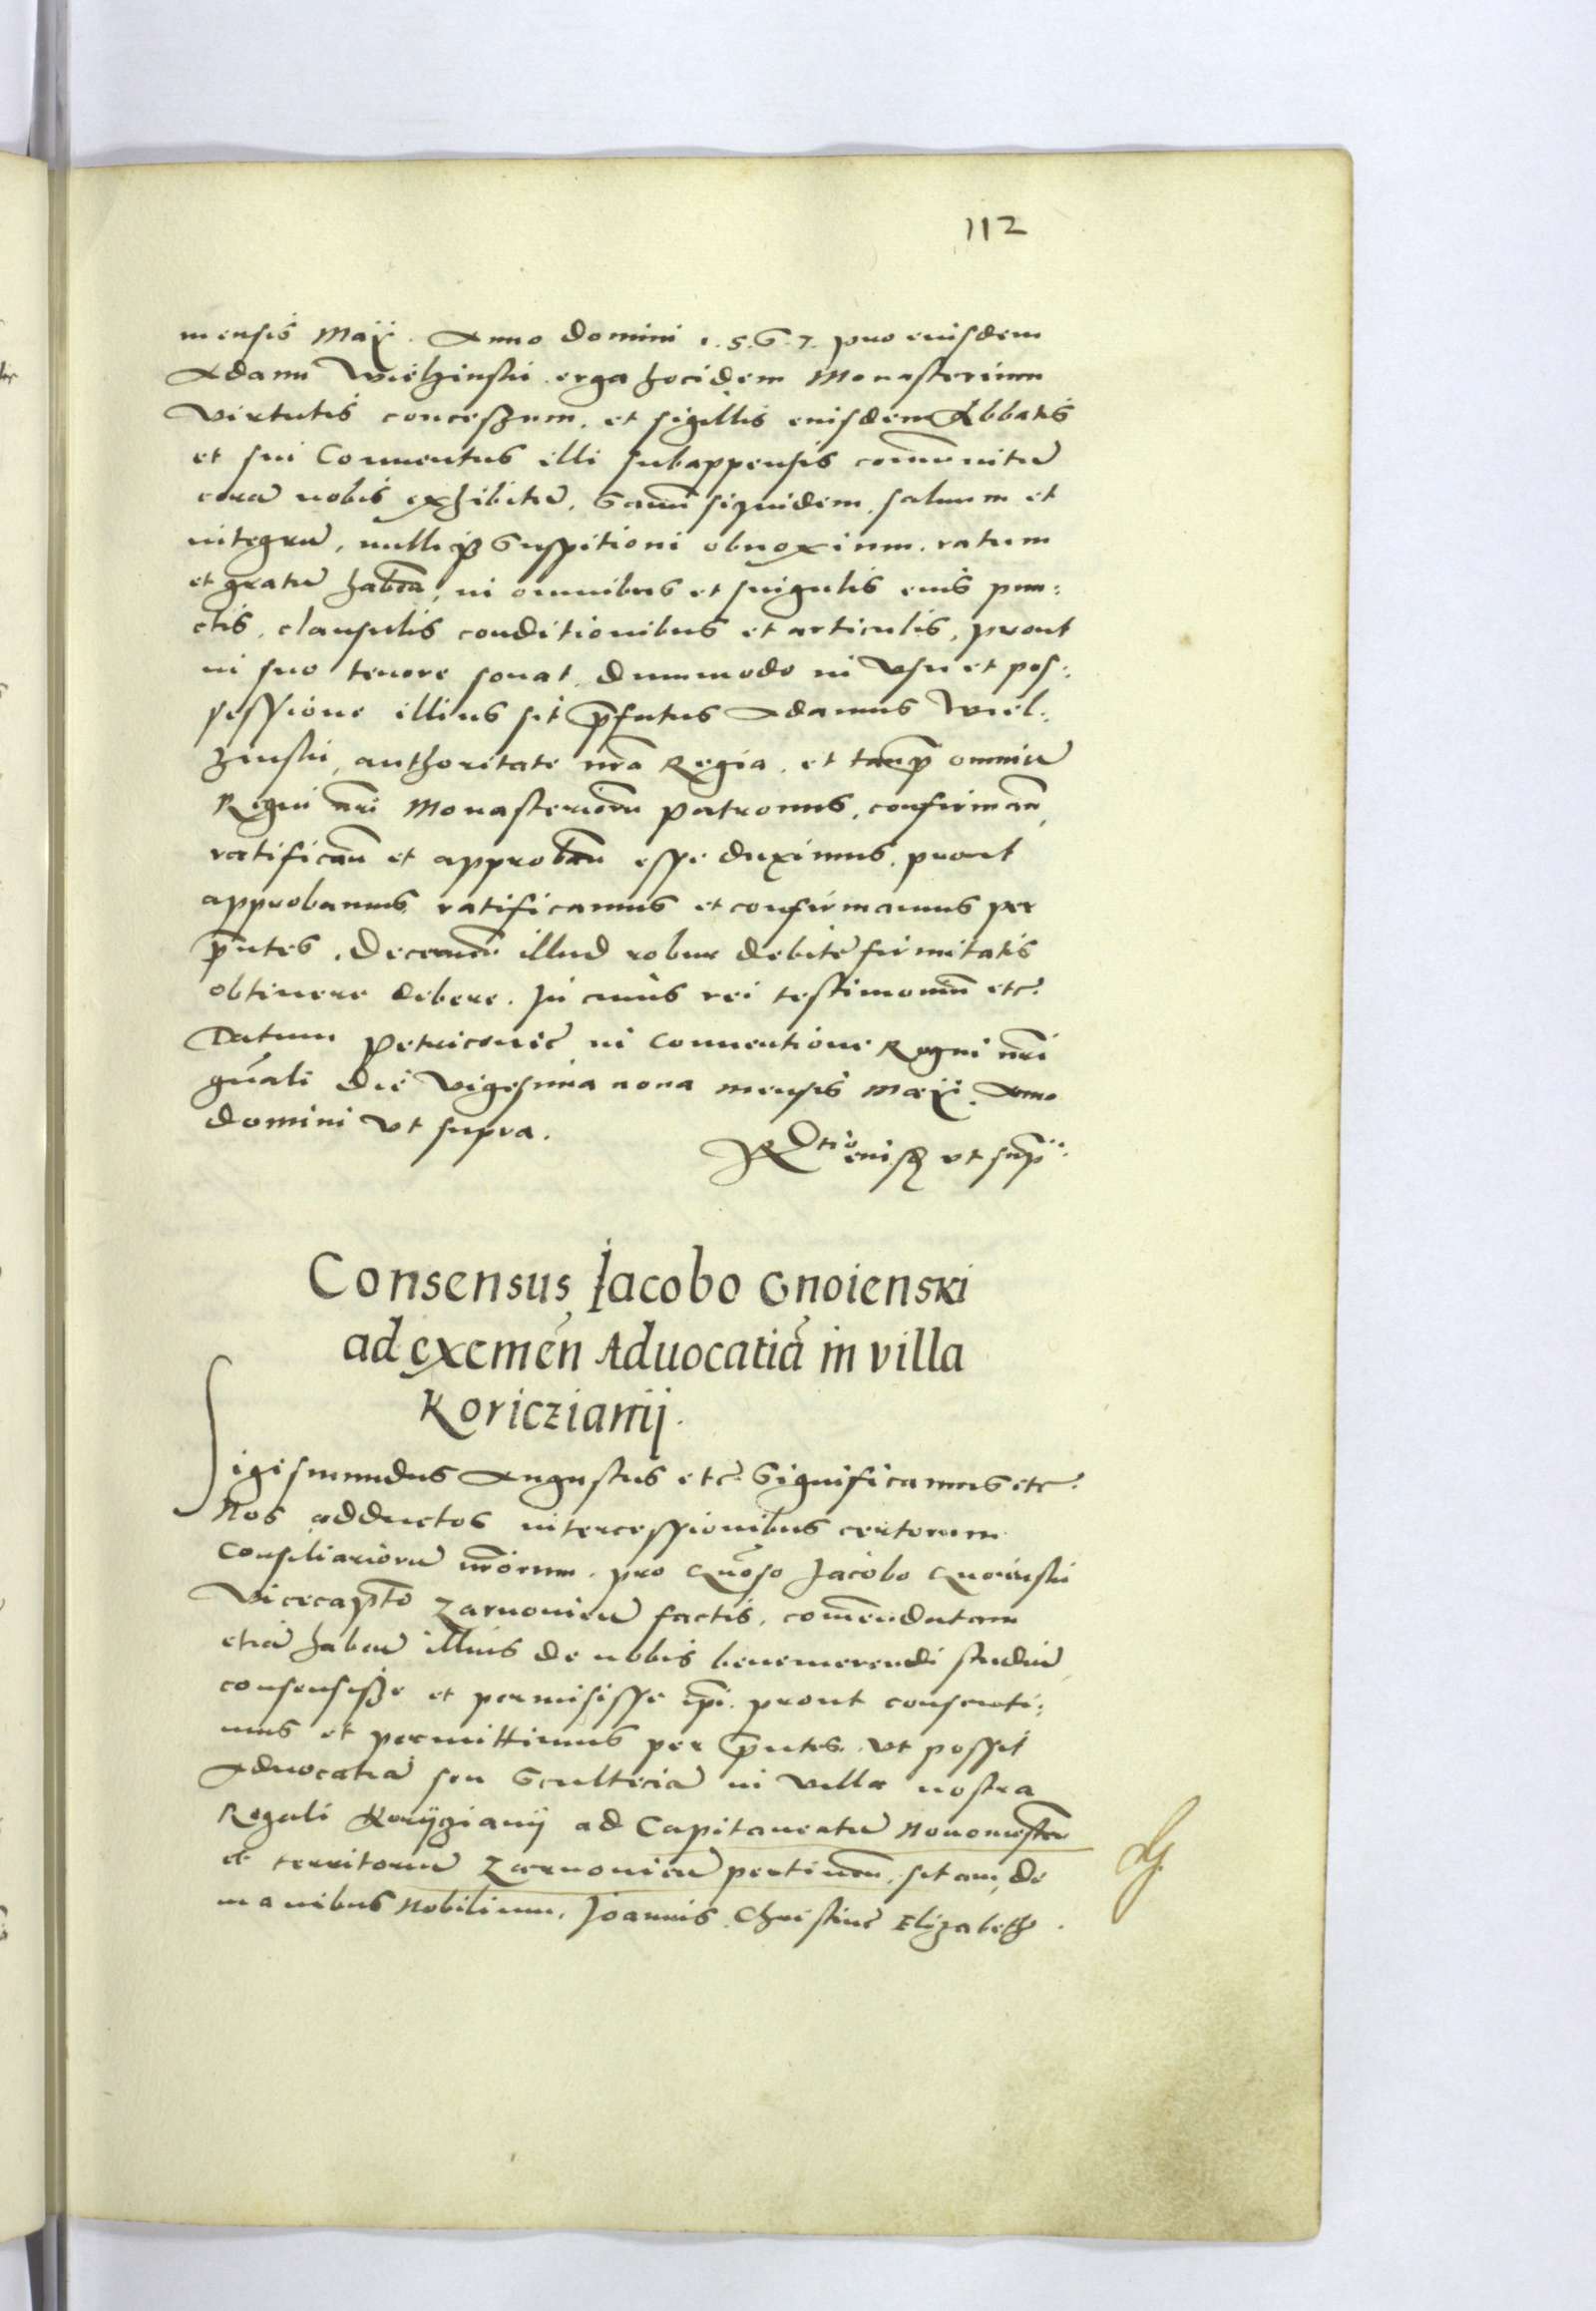 112
mensis Maÿ. Anno domini 1.5.6.7. pro eiusdem
Adami Wielzinskii erga hocidem Monasterium
virtutis concessum. et sigillis eiusdem Abbatis
et sui Conuentus illi subappensis com̄unitũ
corã nobis exhibitũ. Sanũ siquidem, saluum et
integrũ, nulliq̃ Suspitioni obnoxium. ratum
et gratũ haben̄, in omnibus et singulis eius pun:
ctis, clausulis conditionibus et articulis, prout
in suo tenore sonat. dummodo in vsu et pos:
sessione illius sit p̄fatus Adamus Wiel:
zinskii, authoritate nr̄a Regia. et tanq̃ omniũ
Regni nr̄i Monasteriorũ patronus, confirman̄,
ratifican̄ et approban̄ esse duximus. prout
approbamus ratificamus et confirmamus per
p̄ntes. Decernen̄ illud robur debite firmitatis
obtinere debere. In cuius rei testimoniũ etc.
Datum Petricouie in Conuentione Regni nr̄i
gn̄ali die vigesima nona mensis Maÿ. Anno
domini vt supra.
Rtio eiusd̃ vt sup̃
Consensus Jacobo Gnoienski
ad exemen̄ Aduocatiã in villa
Koriczianij.
Sigismundus Augustus etc. Significamus etc.
Nos adductos intercessionibus certorum
Consiliariorũ nr̄orum. pro Gn̄oso Jacobo Gnoinskii
Vicecap̄to Zarnouien̄ factis, com̄endatam
etiã haben̄ illius de nobis benemerendi studiũ
consensisse et permisisse ip̄i. prout consenti:
mus et permittimus per p̄ntes. vt possit
Aduocatiã seu Scultetiã in villa nostra
Regali Koryzianij ad Capitaneatũ Nouomesten̄
et territoriũ Zarnouien̄ pertinen̄, sitam, de
manibus Nobilium. Joannis Christine Elizabeth.